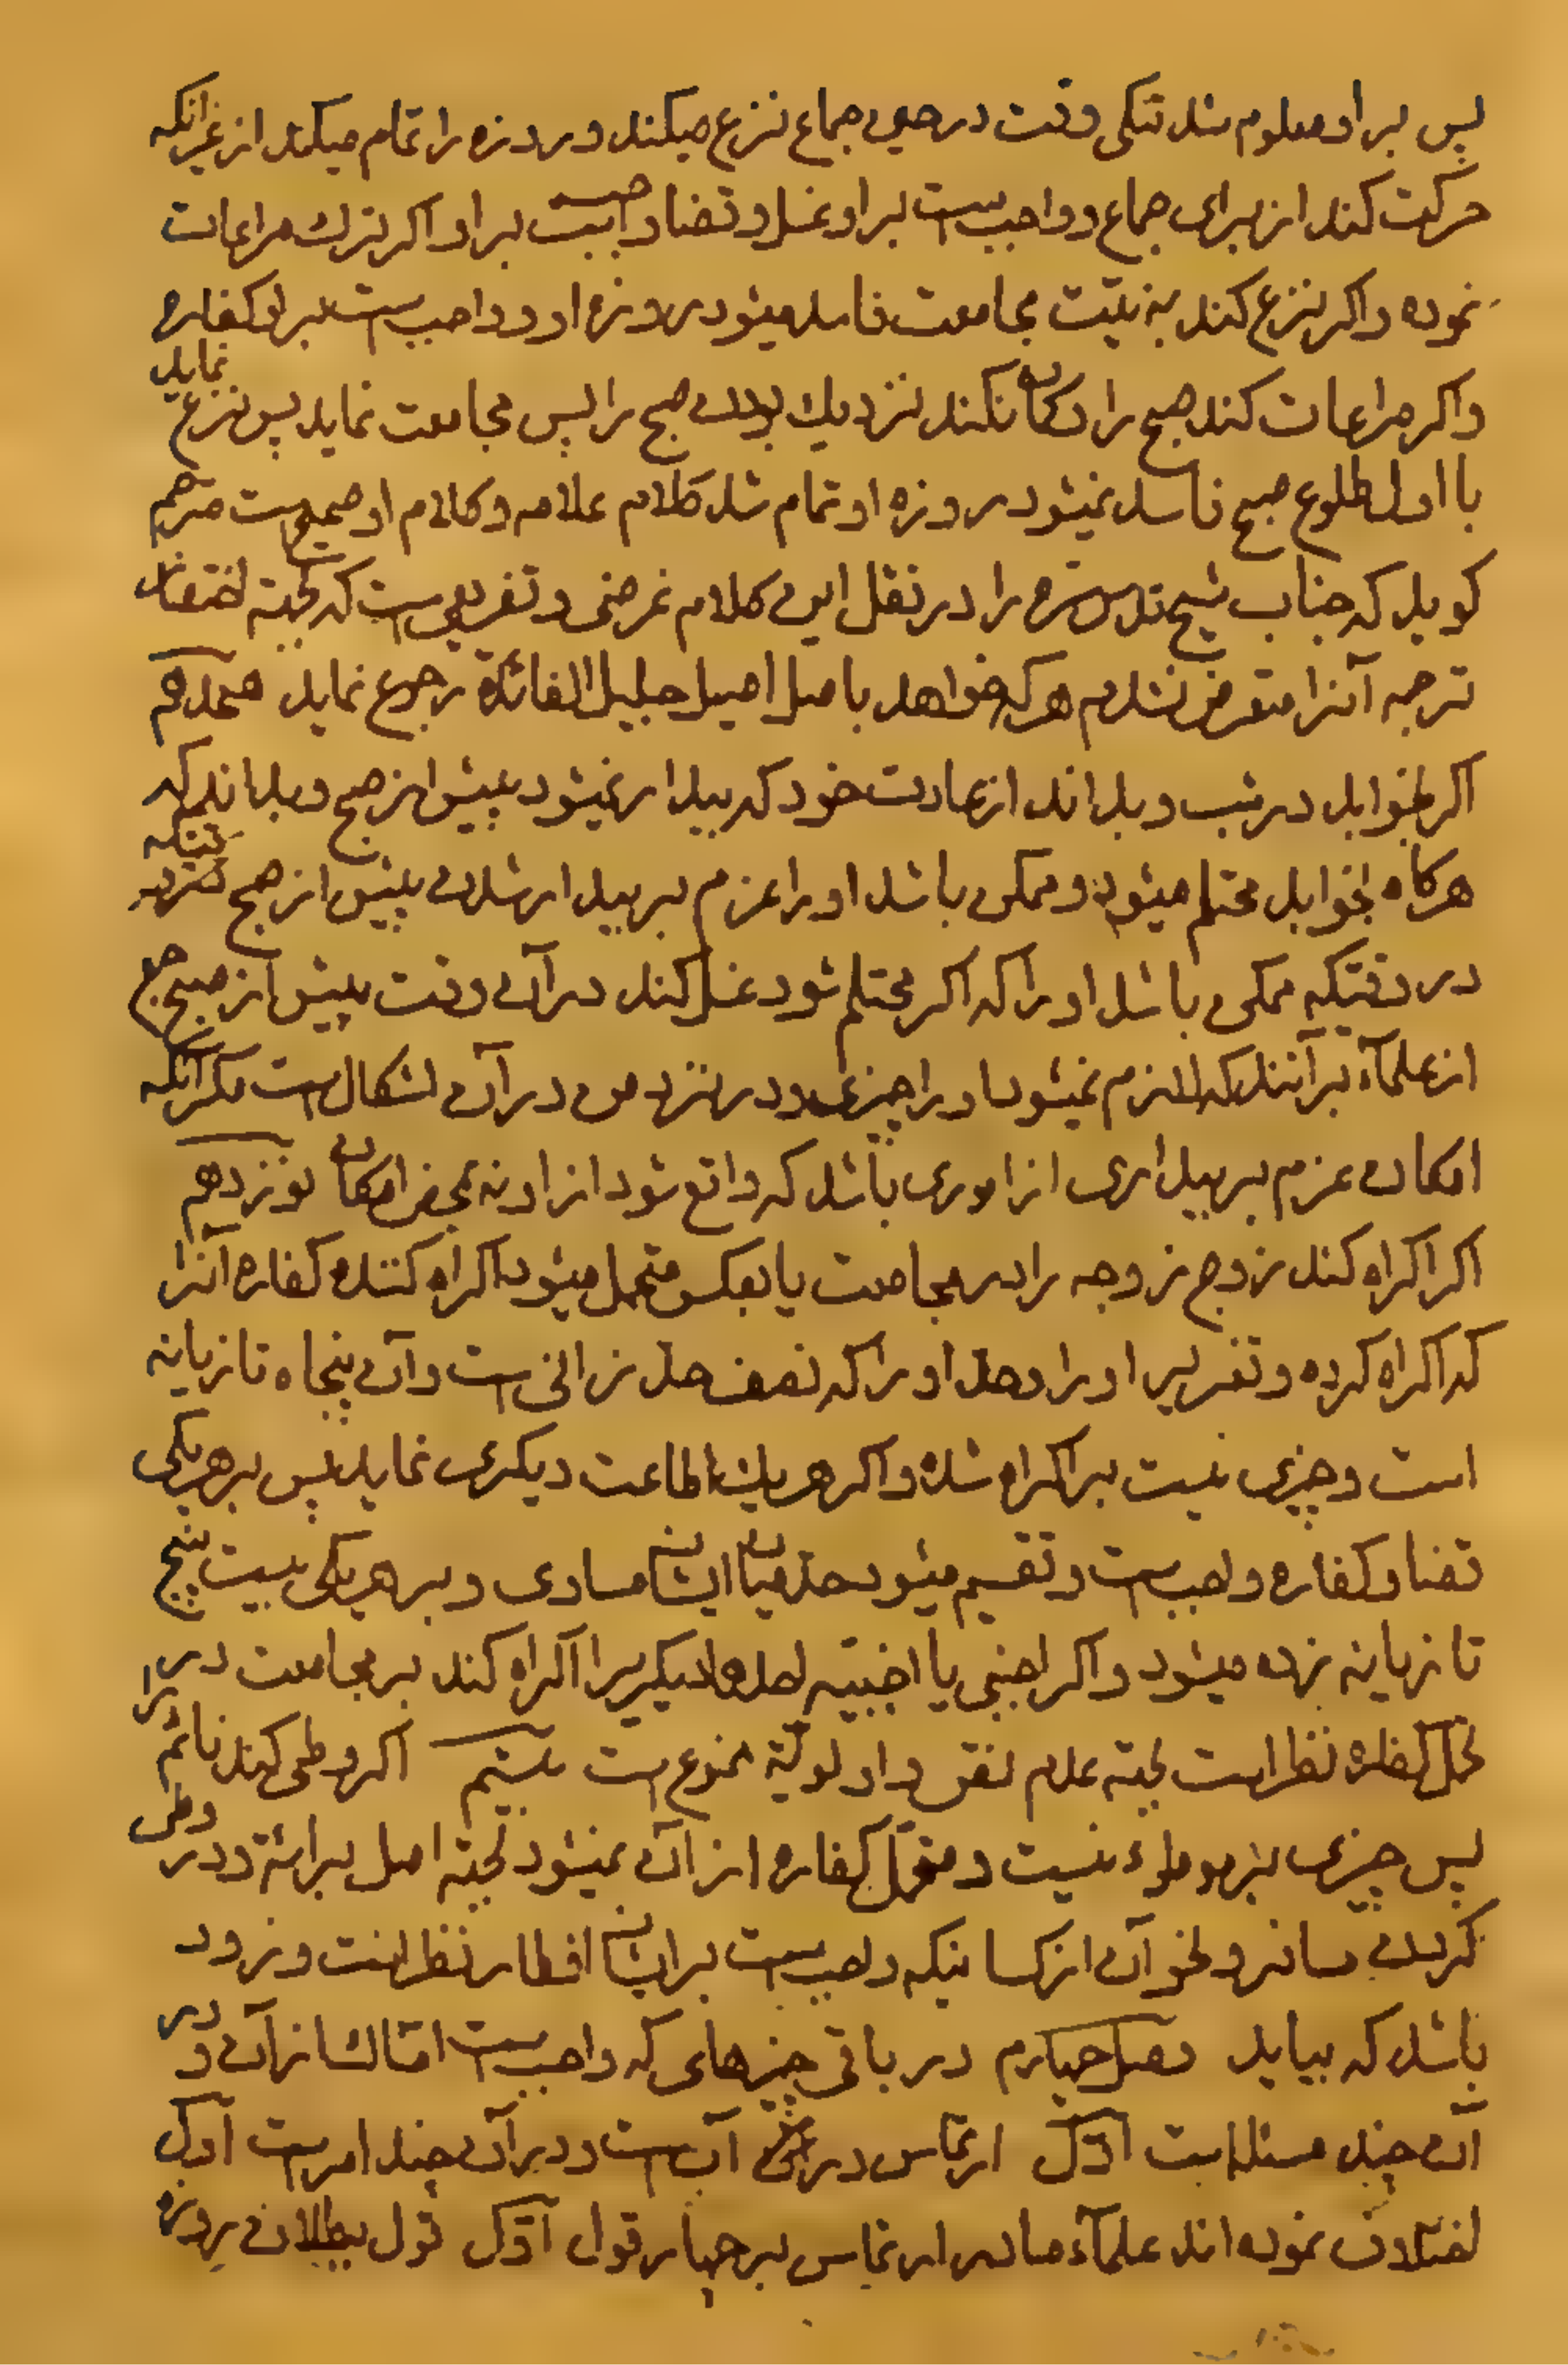 پس بر او معلوم شد تنگی وقت در حین جماع نزع میکند و روزه را تمام میکند از غیر انکه
حرکت کند از برای جماع و واجب ست بر او غسل و قضا واجبست بر او اکر ترک مراعات
نموده و اکر نزع کند به نیّت مجامعت فاسد میشود روزه او و واجب ست بر او کفاره
و اکر مراعات کند صبح را و کمان نکند نزدیک بودن صبح را پس مجامعت نماید پس نزع نماید
با اول طلوع صبح فاسد نمیشود روزه او تمام شد کلام علامه و کلام او صحیح ست مترجم
کوید که جناب شیخ قدس سره را در نقل این کلام غرضی و تفریعی ست که لجهته اختصار
ترجمه آنرا متعرض نشدم هر که خواهد باصل اصیل جلیل الفائدة رجوع نماید هجدهم
اکر بخوابد در شب و بداند از عادت خود که بیدار نمیشود پیش از صبح و بداند که
هرکاه بخوابد محتلم میشود و ممکن باشد او را عزم بر بیدار شدن پیش از صبح
در وقتیکه ممکن باشد او را که اکر محتلم شود غسل کند در آن وقت پیش از صبح جمع
از علمآء برآنند که لازم نمیشود او را چیزی و در نزد من در آن اشکال ست مکر آنکه
امکان عزم بر بیداری از اموری باشد که واقع شود از او نه بمحض امکان نوزدهم
اکر اکراه کند زوج زوجه را بر مجامعت یا بعکس متحمل میشود اکراه کننده کفاره آنرا
که اکراه کرده و تعزیر او را و حدّ او را که نصف حدّ زانی ست و آن پنجاه تازیانه
است و چیزی نیست بر اکراه شده و اکر هر یک اطاعت دیکری نماید پس بر هر یکی
قضا و کفاره واجب ست و تقسیم میشود حدّ میان ایشان مساوی و بر هر یکی بیست پنج
تازیانه زده میشود و اکر اجنبی یا اجنبیّه احدهما دیکری را اکراه کند بر مجامعت در
تحمل کفاره نظر است لجهته عدم نصّ و اولویّة ممنوع ست بیستم اکر وطی کند نائم را
پس چیزی بر موطوء نیست و متحمّل کفاره از آن نمیشود لجهته اصل برائة و در وطی
کردن مسافر و نحو آن از کسانیکه واجب ست بر ایشان افطار نظر است و زود
باشد که بیاید فصل چهارم در باقی چیزهای که واجب ست امساک از آن و در
آن چند مسئله است اوّل ارتماس در آب ست و در آن چند امر ست اول
اختلاف نموده اند علمآء ما در ارتماس بر چهار قول اوّل قول ببطلان روزه